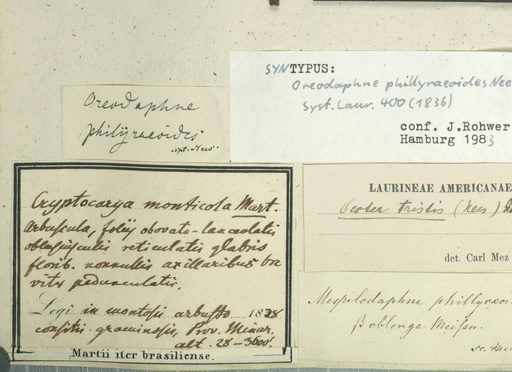 SYNTYPUS:
Oreodaphne phillyraeoides Nee
Syst. Laur. 400 (1836)
conf. J.Rohwer
Hamburg 1983
Oreodaphne
philyraeoides
Cryptocarya monticola Mart.
Arbuscula, foliis obovato-lanceolatis
reticulatis glabris
florib. nonnullis axillaribus bre
viter pedunculatis.
Legi in montosis arbusto 1828
graminosis Prov. Minar.
alt. 28-3600'.
Martii iter brasiliense.
LAURINEAE AMERICANAE
Ocotea tristis (Nees)
det. Carl Mez
Mespilodaphne phillyraeoi
β oblonga Meisn.